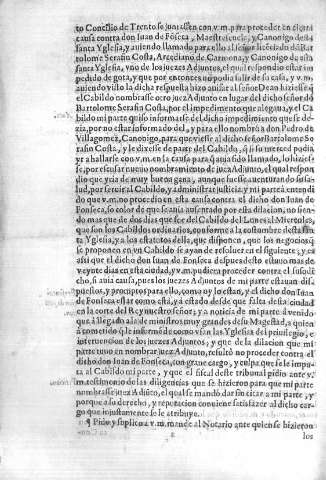 to Concilio de Trento se juntassen con v.m. para proceder en cierta
causa contra don Iuan de Fonseca, Maestrescuela, y Canonigo desta
santa Yglesia, y auiendo llamado para ello al señor licēciado dō Bar
tolome Serafin Costa, Arcediano de Carmona, y Canonigo de esta
santa Yglesia, vno de los juezes Adjuntos, el qual respondio estar im
pedido de gota, y que por entonces no podia salir de su casa, y v.m.
auiendo visto la dicha respuesta hizo auisar al señor Dean hiziesse q̄
el Cabildo nombrasse otro juez Adjunto en lugar del dicho señor dō
Bartolome Serafin Costa, por el impedimento que alegaua, y el Ca
bildo mi parte quiso informarse del dicho impedimento que se de-
zia, por no estar informado del, y para ello nombrò a don Pedro de
Villagomez, Canonigo, para que viesse al dicho señor Bartolome Se
rafin Costa, y le dixesse de parte del Cabildo, q̄ si su merced podia
yr a hallarse con v.m. en la causa para q̄ auia sido llamado, lo hiziesse
, por escusar nueuo nombramiento de juez Adjunto, el qual respon
dio que yria de muy buena gana, aunque fuesse auenturando su sa-
lud, por seruir al Cabildo, y administrar justicia, y mi parte à entendi
do que v.m. no procedio en esta causa contra el dicho don Iuan de
Fonseca, so color de que se auia ausentado por esta dilacion, no sien-
do mas que de dos dias que ay del Cabildo del Lunes al Miercoles,
que son los Cabildos ordinarios, conforme a la costumbre desta san
ta Yglesia, y a los estatutos della, que disponen, que los negocios q̄
se proponen en vn Cabildo se ayan de resoluer en el siguiente, y es
assi que el dicho don Iuan de Fonseca despues desto estuuo mas de
veynte dias en esta ciudad, y v.m. pudiera proceder contra el susodi
cho, si auia causa, pues los juezes Adjuntos de mi parte estauan dis-
puestos, y promptos para ello, como oy lo estan, y el dicho don Iuan
de Fonseca estar como està, y à estado desde que falta desta ciudad
en la corte del Rey nuestro señor; y a noticia de mi parte à venido
que à llegado a la de ministros muy graues de su Magestad, a quien
à cometido q̄ le informē de como vsan las Yglesias del priuilegio, e
interuencion de los juezes Adjuntos, y que de la dilacion que mi
parte tuuo en nombrar juez Adjunto, resultò no proceder contra el
dicho don Iuan de Fonseca, con graue cargo, y culpa que se le impu
ta al Cabildo mi parte, y que el fiscal deste tribunal pidio ante v.
m. testimonio de las diligencias que se hizieron para que mi parte
nombrasse juez Adjūto, el qual se mandò dar sin citar a mi parte, y
porque a su derecho, y reputacion conuiene satisfazer al dicho car-
go que injustamente se le atribuye.
¶ Pido y suplico a v.m. mande al Notario ante quien se hizieron
los